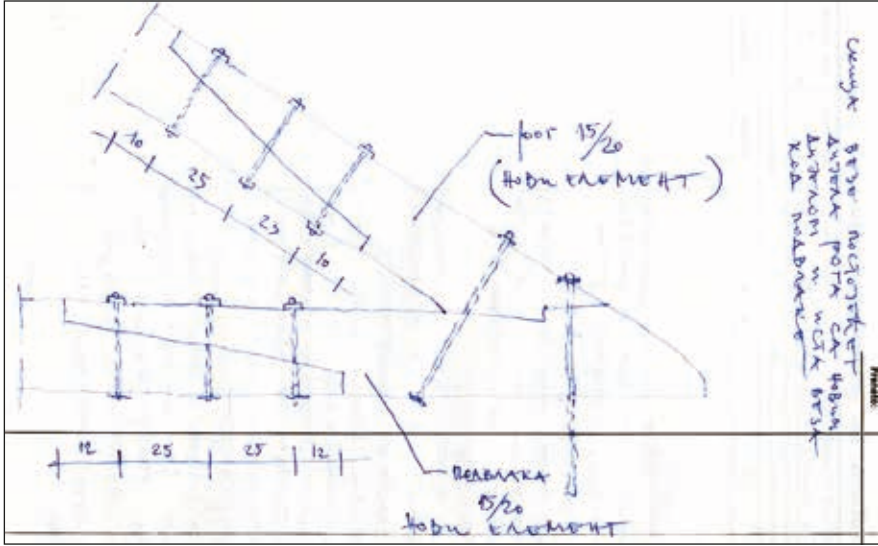 рог 15/20
(НОВИ ЕЛЕМЕНТ)
10
25
25
10
12
25
25
12
ПОДВЛАКА
15/20
НОВИ ЕЛЕМЕНТ
СКИЦА ВЕЗЕ ПОСТОЈЕЋЕГ
ДИЈЕЛА РОГА СА НОВИМ
ДИЈЕЛОМ И ИСТА ВЕЗА
КОД ПОДВЛАКЕ